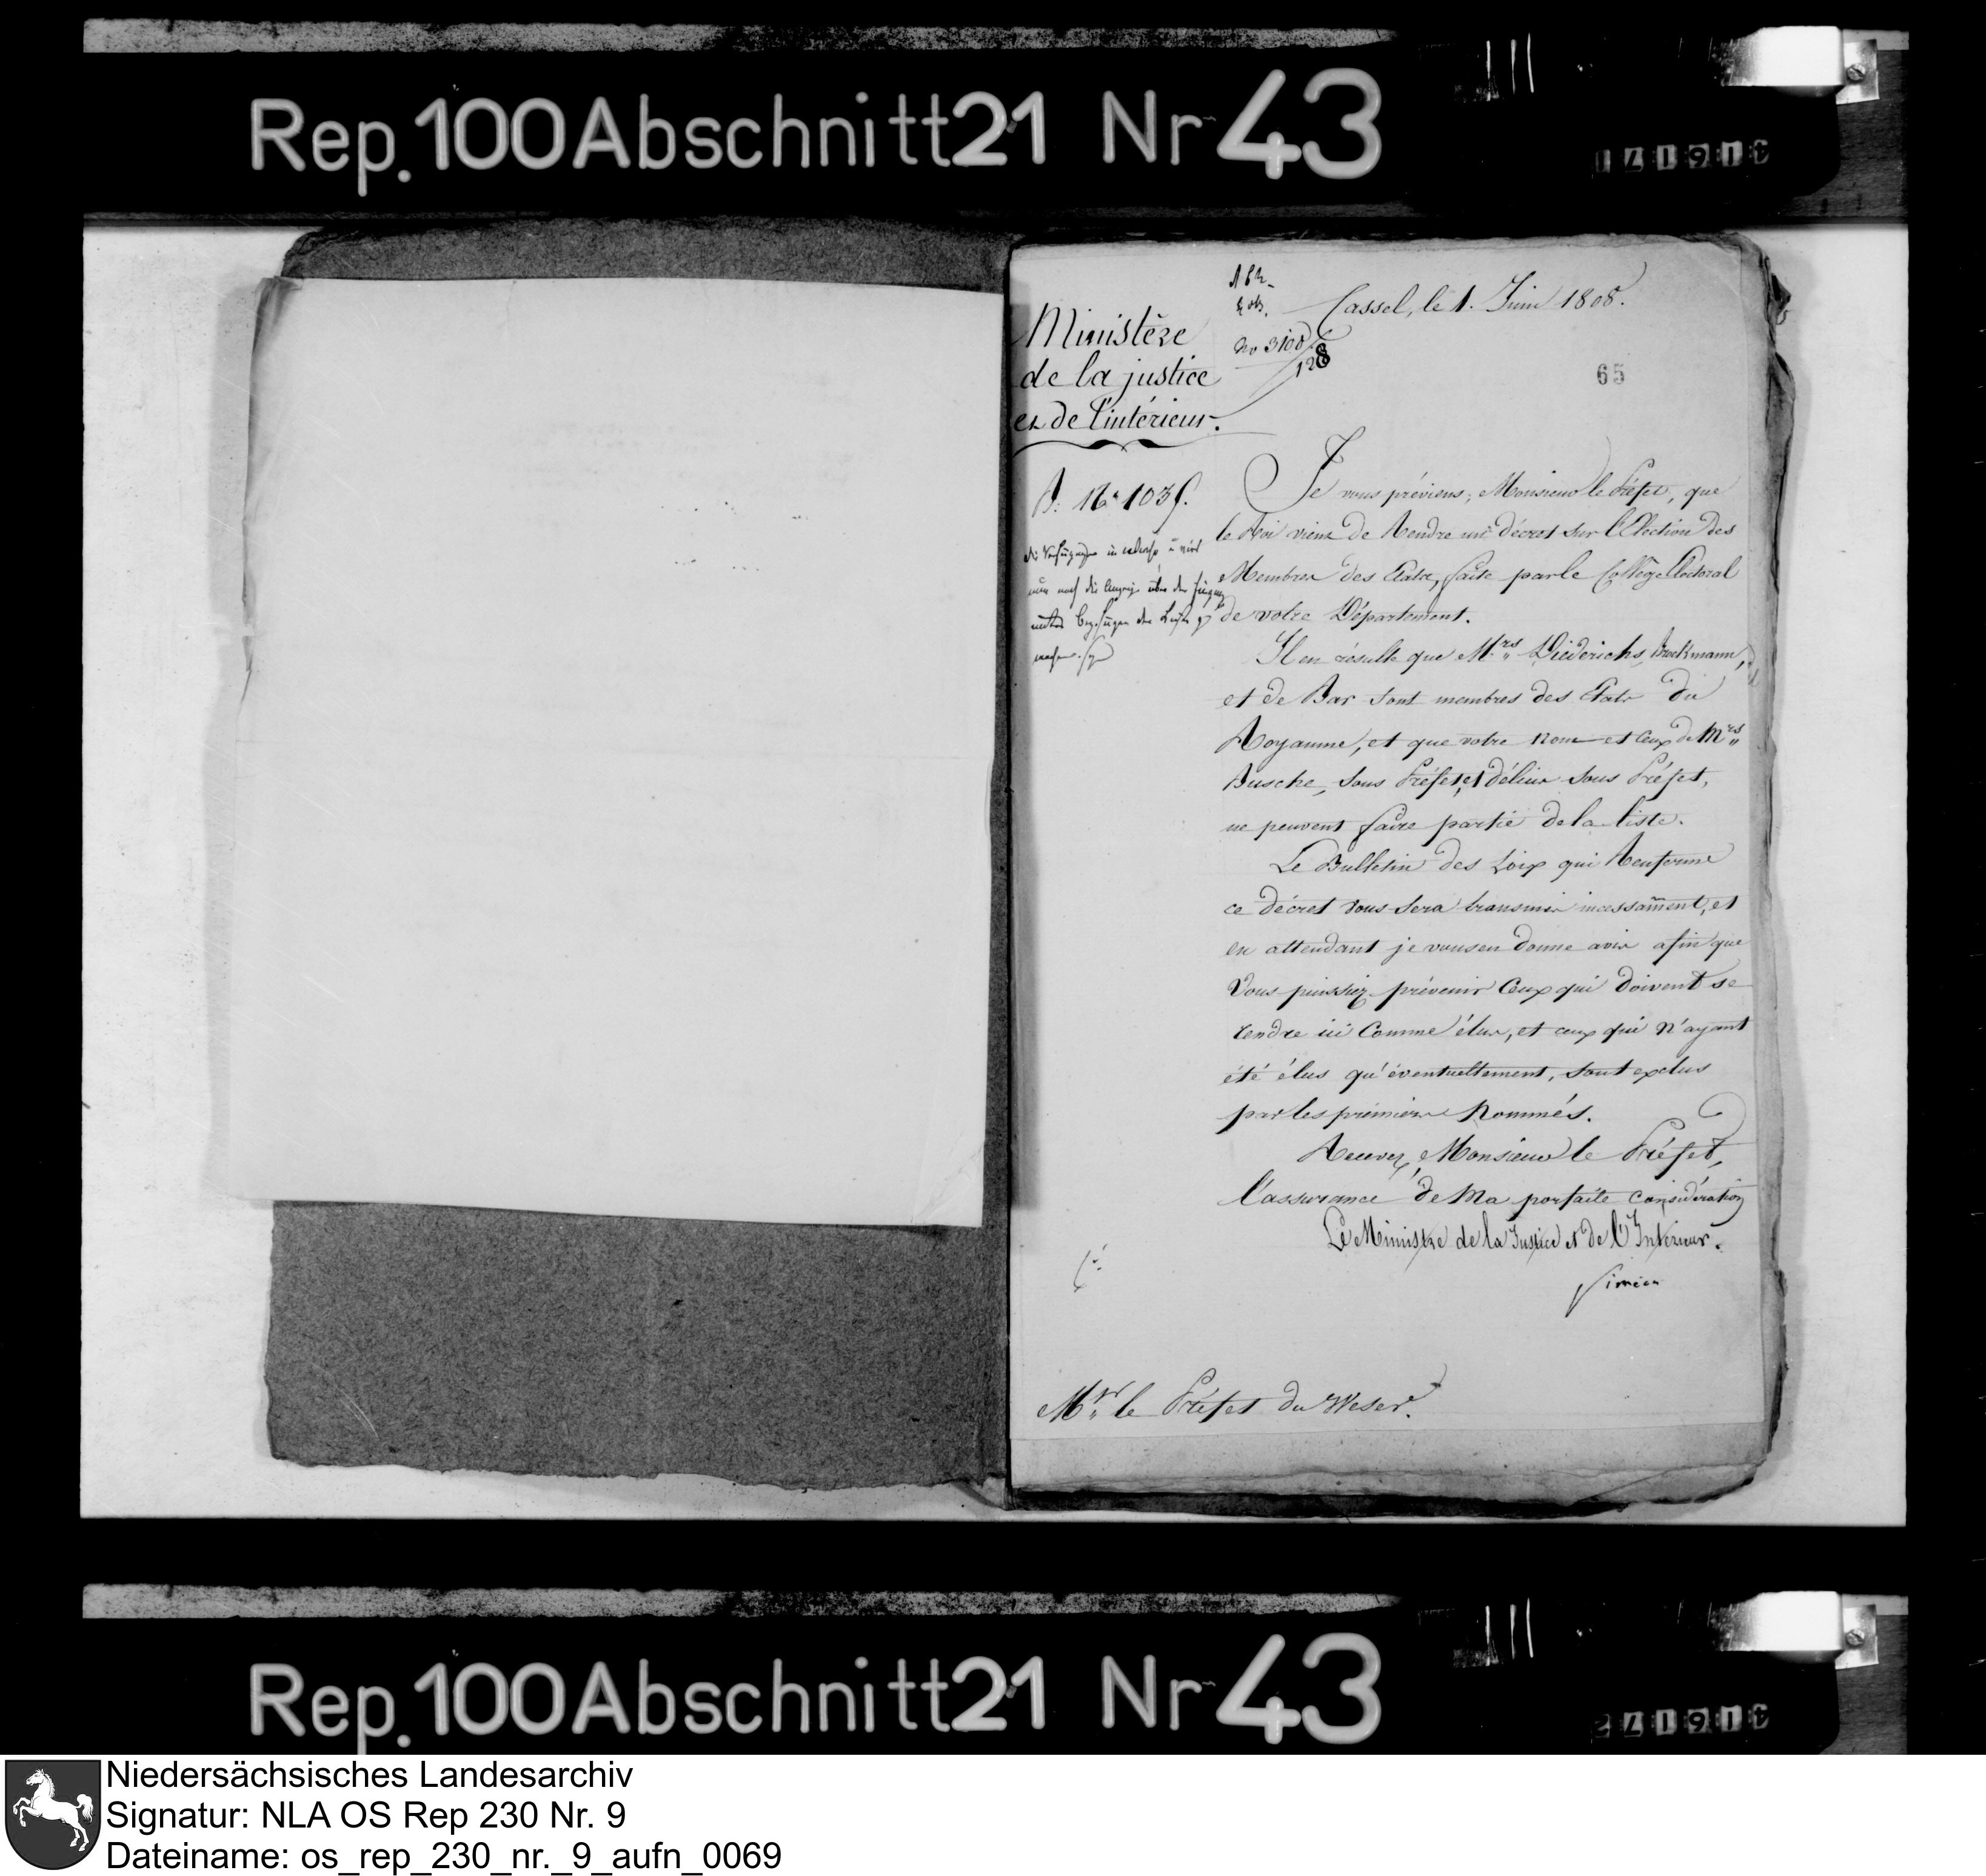 Rep. 100 Abschnitt 21 Nr 43
Cassel, le 1. Juin 1808.
No 3108
128
65
Ministère
de la justice
et de l'intérieur.
Je vous préviens, Monsieur le Préfet, que
le Roi vient de Rendre un décret sur l'Election des
Membres des Etats, faite par le Collège Electoral
de votre Département.
Il en résulte que M.rs Diederichs, Brockmann,
et de Bar sont membres des Etats du
Royaume, et que votre Nom et Ceux de Mrs
Busche, Sous Préfet, et Délius Sous Préfet,
ne peuvent faire partie de la liste.
Le Bulletin des Loix qui Renferme
ce décret vous sera transmis incessam̃ent, et
en attendant je vous en donne avis afin que
Vous puissiez prévenir Ceux qui doivent se
rendre ici Comme élus, et ceux qui n'ayant
été élus qu'éventuellement, sont exclus
par les premiers Nommés.
Recevez, Monsieur le Préfet,
l'assurance de Ma parfaite considération
Le Ministre de la Justice et de l'Intérieur.
Siméon
Mr. le Préfet du Weser.
Rep. 100 Abschnitt 21 Nr 43
Niedersächsisches Landesarchiv
Signatur: NLA OS Rep 230 Nr. 9
Dateiname: os_rep_230_nr._9_aufn_0069